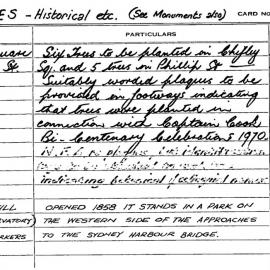 ES - Historical etc. (See Monuments 2/50) CARD NO
PARTICULARS
uare Six Trees to be planted in Chifley
St. Sq and 5 trees in Phillip St
Suitably worded plaques to be
provided in footways indicating
that trees were planted in
connection with Captain Cook
Bi-Centenary Celebrations 1970.
indicating botanical
ILL OPENED 1858 IT STANDS IN A PARK ON
RVATORY) THE WESTERN SIDE OF THE APPROACHES
RKERS TO THE SYDNEY HARBOUR BRIDGE.